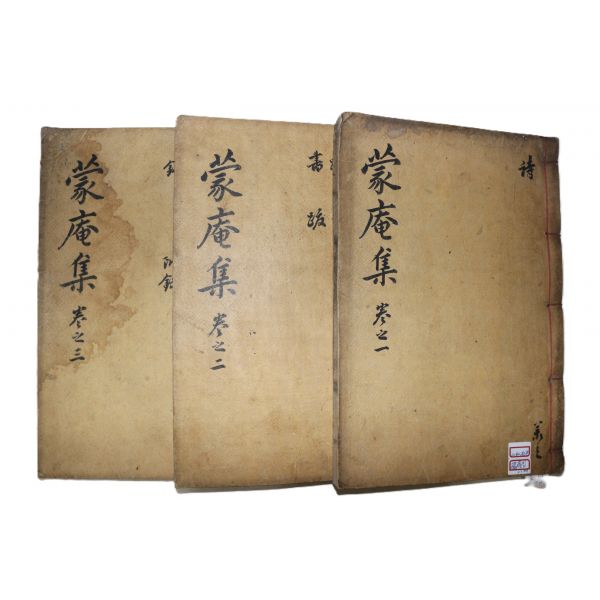 蒙庵集
卷之一
詩
蒙庵集
卷之二
書
跋
蒙庵集
卷之三
附錄